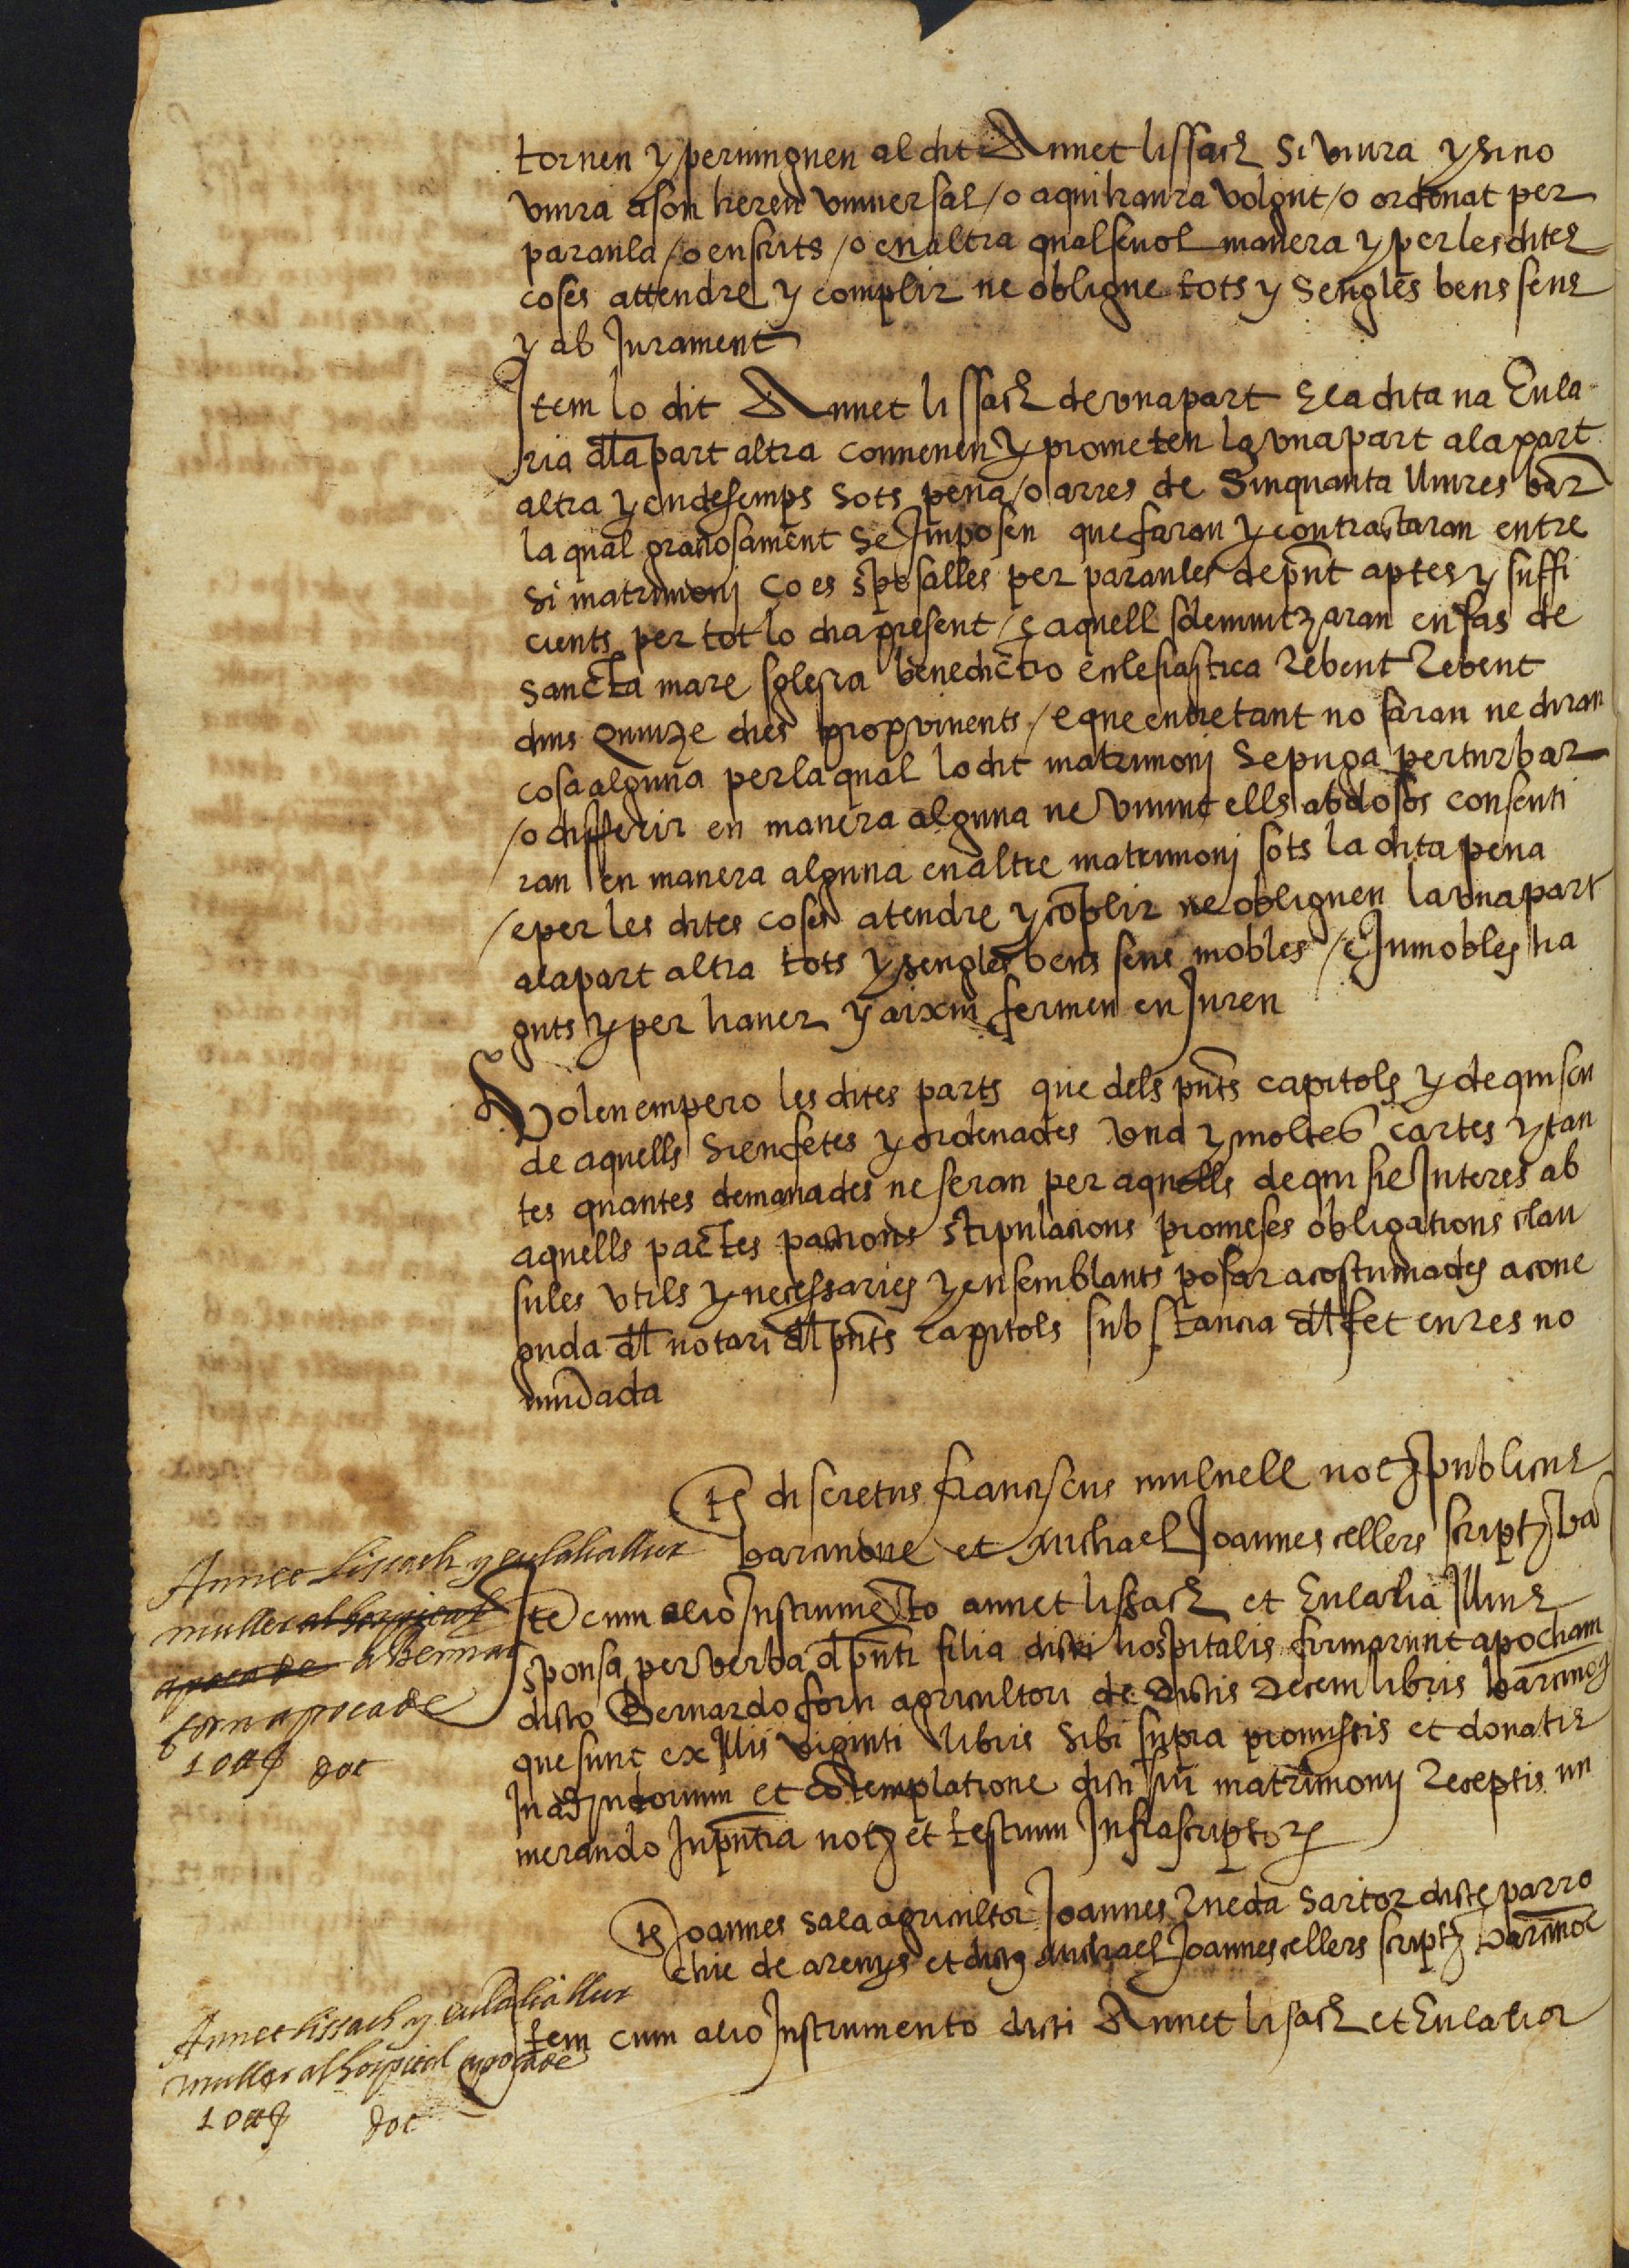 tornen y pervinguen al dit Annet lissach si viura y sino
viura a son hereu universal / o a qui haura volgut / o ordenat per
paraula / o en scrits / o en altra qualsevol manera y per les dites
coses attendre y complir ne obligue tots y sengles bens seus
y ab Jurament
Item lo dit Annet lissach de una part e la dita na Eula
ria dla part altra convenen y prometen la una part a la part
altra y endesemps sots pena / o arres de Sinquanta lliures bar
la qual graciosament se Imposen que faran y contractaran entre
si matrimonj ço es sposalles per paraules de pnt aptes y suffi
cients per tot lo dia present / e aquell solemnitzaran en fas de
sancta mare sglesia benedictio eclesiastica rebent rebent
dins Quinze dies propvinents / e que entretant no faran ne diran
cosa alguna per la qual lo dit matrimonj se puga perturbar
/ o differir en manera alguna ne vivint ells abdosos consenti
ran en manera alguna en altre matrimonj sots la dita pena
/ e per les dites coses atendre y coplir ne obliguen la una part
a la part altra tots y sengles bens seus mobles / e Inmobles ha
guts y per haver y aixi u fermen e u Juren
Volen empero les dites parts que dels pnts capitols y de quiscu
de aquells sien fetes y ordenades una y moltes cartes y tan
tes quantes demanades ne seran per aquells de qui sie Interes ab
aquells pactes pactions stipulacions promeses obligations clau
sules utils y necessaries y en semblants posar acostumades a cone
guda dl notari dl pnts capitols substancia dl fet en res no
mudada
ts discretus franciscus mulnell not publicus
barcinone et Michael Joannes cellers script ba
Annet Lissach y eulalia llur
muller al hospital
apoca de a Bernat
forn apoca de
10 ll dot
Ite cum alio Instrumento annet lissach et Eulalia Illius
sponsa per verba d pnti filia dicti hospitalis firmarunt apocham
dicto Bernardo forn agricultori de dictis decem libris barcinon
que sunt ex Illis viginti libris sibi supra promissis et donatis
In adjutorium et cotemplatione dicti sui matrimonij receptis nu
merando In pntia not et testium Infrascriptor
ts Joannes sala agricultor Joannes Rueda sartor dicte parro
chie de arenys et dictus Michael Joannes cellers script barcinone
Annet lissach y eulalia llur
muller al hospital apoca de
10 ll dot
Item cum alio Instrumento dicti Annet lisach et Eulalia